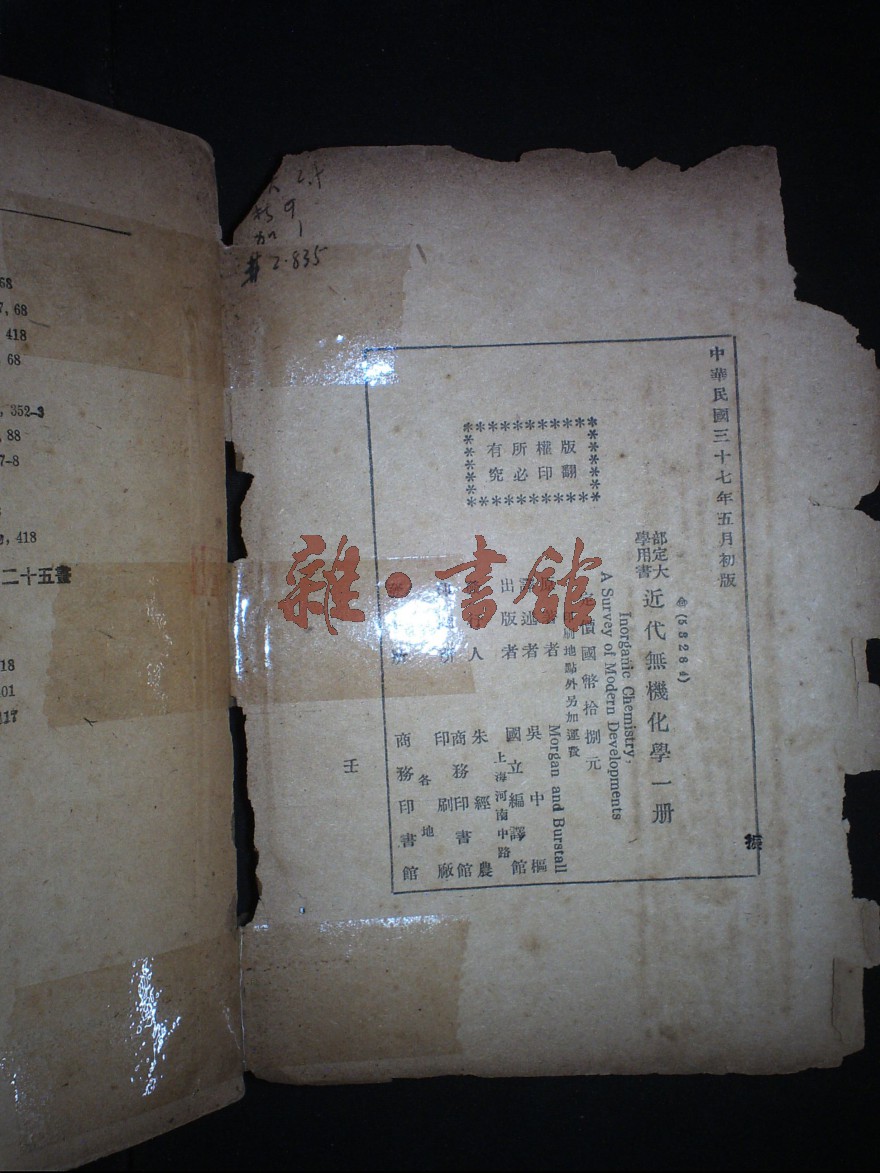 68
7, 68
418
68
352-3
88
7-8
418
二十五畫
18
01
117
2.835
中華民國三十七年五月初版
(58284)
部定大
學用書
近代無機化學一册
Inorganic Chemistry,
A Survey of Modern Developments
價國幣拾捌元
印刷地點外另加運費
版權所有
翻印必究
者 Morgan and Burstall
譯述者 吳中樞
出版者 國立編譯館
上海河南中路
人 朱經農
商務印書館
印刷
各地
廠
商務印書館
壬
雜·書館